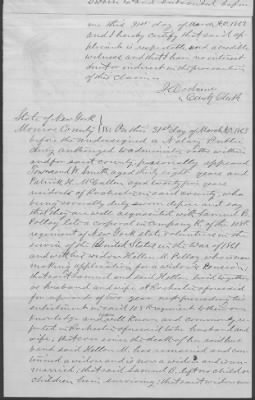 me this 31st day of March A.D. 1865
and I hereby certify that said af
is respectable and a credible
witness and that I have no interest
direct or indirect in the prosecution
of this claim
County Clerk
State of New York
Monroe County SS: On this 31st day of March AD 1865
before the undersigned a Notary Public
duly authorized to administer oaths within
and for said county, personally appeared
Smith aged thirty eight years and
Patrick H. McCallen aged twenty five years
residents of Rochester in said county, who
being severally duly sworn depose and say
that they are well acquainted with Samuel B.
late a corporal in Company of the 108
regiment of New York state volunteers in the
service of the United States in the War of 1861
and with his widow Hellen M. who is now
making application for a widow's Pension
that said Samuel and said Hellen lived together
as husband and wife at Rochester aforesaid
for upwards of two years next preceding his
enlistment in said 108 Regiment to their own
knowledge and well known and commonly re
puted in Rochester aforesaid to be husband and
wife; that ever since the death of her said hus
band said Hellen M. has remained and con
tinued a widow and is now a widow and is un
married; that said Samuel B. left no child or
children him surviving; that said widow was